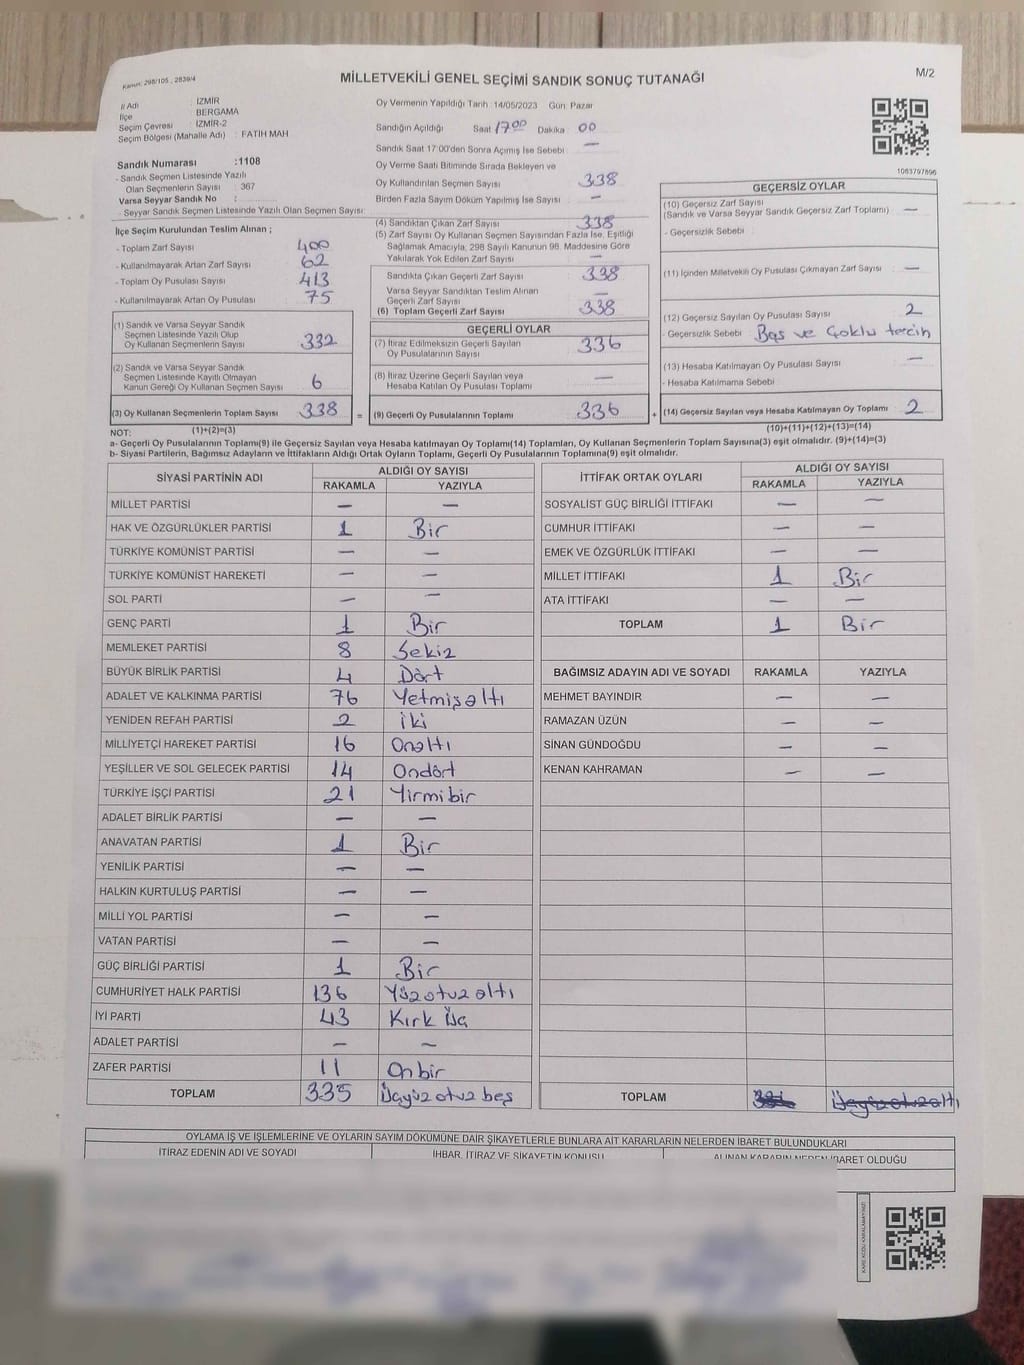 Kanun: 298/105, 2839/4
MİLLETVEKİLİ GENEL SEÇİMİ SANDIK SONUÇ TUTANAĞI
M/2
İl Adı : İZMİR
İlçe : BERGAMA
Seçim Çevresi : İZMİR-2
Seçim Bölgesi (Mahalle Adı) : FATİH MAH
Sandık Numarası :1108
- Sandık Seçmen Listesinde Yazılı
Olan Seçmenlerin Sayısı : 367
Varsa Seyyar Sandık No :
- Seyyar Sandık Seçmen Listesinde Yazılı Olan Seçmen Sayısı:
İlçe Seçim Kurulundan Teslim Alınan ;
- Toplam Zarf Sayısı 400
- Kullanılmayarak Artan Zarf Sayısı 62
- Toplam Oy Pusulası Sayısı 413
- Kullanılmayarak Artan Oy Pusulası 75
(1) Sandık ve Varsa Seyyar Sandık
Seçmen Listesinde Yazılı Olup
Oy Kullanan Seçmenlerin Sayısı 332
(2) Sandık ve Varsa Seyyar Sandık
Seçmen Listesinde Kayıtlı Olmayan
Kanun Gereği Oy Kullanan Seçmen Sayısı 6
(3) Oy Kullanan Seçmenlerin Toplam Sayısı 338 =
Oy Vermenin Yapıldığı Tarih :14/05/2023 Gün: Pazar
Sandığın Açıldığı Saat 17:00 Dakika 00
Sandık Saat 17:00'den Sonra Açılmış İse Sebebi: —
Oy Verme Saati Bitiminde Sırada Bekleyen ve
Oy Kullandırılan Seçmen Sayısı 338
Birden Fazla Sayım Döküm Yapılmış İse Sayısı —
(4) Sandıktan Çıkan Zarf Sayısı 338
(5) Zarf Sayısı Oy Kullanan Seçmen Sayısından Fazla İse, Eşitliği
Sağlamak Amacıyla, 298 Sayılı Kanunun 98. Maddesine Göre
Yakılarak Yok Edilen Zarf Sayısı —
Sandıkta Çıkan Geçerli Zarf Sayısı 338
Varsa Seyyar Sandıktan Teslim Alınan
Geçerli Zarf Sayısı —
(6) Toplam Geçerli Zarf Sayısı 338
GEÇERLİ OYLAR
(7) İtiraz Edilmeksizin Geçerli Sayılan
Oy Pusulalarının Sayısı 336
(8) İtiraz Üzerine Geçerli Sayılan veya
Hesaba Katılan Oy Pusulası Toplamı —
(9) Geçerli Oy Pusulalarının Toplamı 336 +
1063797896
GEÇERSİZ OYLAR
(10) Geçersiz Zarf Sayısı
(Sandık ve Varsa Seyyar Sandık Geçersiz Zarf Toplamı) —
- Geçersizlik Sebebi :
(11) İçinden Milletvekili Oy Pusulası Çıkmayan Zarf Sayısı —
(12) Geçersiz Sayılan Oy Pusulası Sayısı 2
- Geçersizlik Sebebi : Boş ve Çoklu tercih
(13) Hesaba Katılmayan Oy Pusulası Sayısı —
- Hesaba Katılmama Sebebi
(14) Geçersiz Sayılan veya Hesaba Katılmayan Oy Toplamı 2
NOT: (1)+(2)=(3) (10)+(11)+(12)+(13)=(14)
a- Geçerli Oy Pusulalarının Toplamı(9) ile Geçersiz Sayılan veya Hesaba katılmayan Oy Toplamı(14) Toplamları, Oy Kullanan Seçmenlerin Toplam Sayısına(3) eşit olmalıdır. (9)+(14)=(3)
b- Siyasi Partilerin, Bağımsız Adayların ve İttifakların Aldığı Ortak Oyların Toplamı, Geçerli Oy Pusulalarının Toplamına(9) eşit olmalıdır.
SİYASİ PARTİNİN ADI ALDIĞI OY SAYISI
RAKAMLA YAZIYLA
MİLLET PARTİSİ — —
HAK VE ÖZGÜRLÜKLER PARTİSİ 1 Bir
TÜRKİYE KOMÜNİST PARTİSİ — —
TÜRKİYE KOMÜNİST HAREKETİ — —
SOL PARTİ — —
GENÇ PARTİ 1 Bir
MEMLEKET PARTİSİ 8 Sekiz
BÜYÜK BİRLİK PARTİSİ 4 Dört
ADALET VE KALKINMA PARTİSİ 76 Yetmişaltı
YENİDEN REFAH PARTİSİ 2 iki
MİLLİYETÇİ HAREKET PARTİSİ 16 Onaltı
YEŞİLLER VE SOL GELECEK PARTİSİ 14 Ondört
TÜRKİYE İŞÇİ PARTİSİ 21 Yirmibir
ADALET BİRLİK PARTİSİ — —
ANAVATAN PARTİSİ 1 Bir
YENİLİK PARTİSİ — —
HALKIN KURTULUŞ PARTİSİ — —
MİLLİ YOL PARTİSİ — —
VATAN PARTİSİ — —
GÜÇ BİRLİĞİ PARTİSİ 1 Bir
CUMHURİYET HALK PARTİSİ 136 Yüzotuzaltı
İYİ PARTİ 43 Kırk Üç
ADALET PARTİSİ — —
ZAFER PARTİSİ 11 Onbir
TOPLAM 335 Üçyüzotuzbeş
İTTİFAK ORTAK OYLARI ALDIĞI OY SAYISI
RAKAMLA YAZIYLA
SOSYALİST GÜÇ BİRLİĞİ İTTİFAKI — —
CUMHUR İTTİFAKI — —
EMEK VE ÖZGÜRLÜK İTTİFAKI — —
MİLLET İTTİFAKI 1 Bir
ATA İTTİFAKI — —
TOPLAM 1 Bir
BAĞIMSIZ ADAYIN ADI VE SOYADI RAKAMLA YAZIYLA
MEHMET BAYINDIR — —
RAMAZAN ÜZÜN — —
SİNAN GÜNDOĞDU — —
KENAN KAHRAMAN — —
TOPLAM Üçyüzotuzaltı
OYLAMA İŞ VE İŞLEMLERİNE VE OYLARIN SAYIM DÖKÜMÜNE DAİR ŞİKAYETLERLE BUNLARA AİT KARARLARIN NELERDEN İBARET BULUNDUKLARI
İTİRAZ EDENİN ADI VE SOYADI İHBAR, İTİRAZ VE ŞİKAYETİN KONUSU ALINAN KARARIN NEDEN İBARET OLDUĞU
KARE KODU KARALAMAYINIZ!